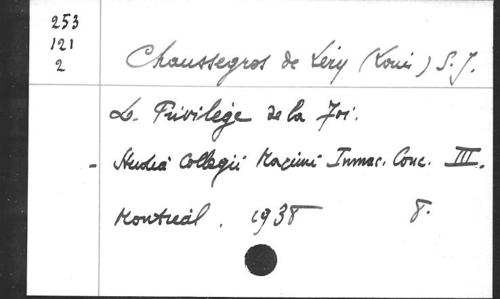 253
121
2
Chaussegros de Léry (Louis) S. J.
Le Privilège de la Foi.
- Studia Collegii Maximi Immac. Conc. III.
Montréal. 1938 8.